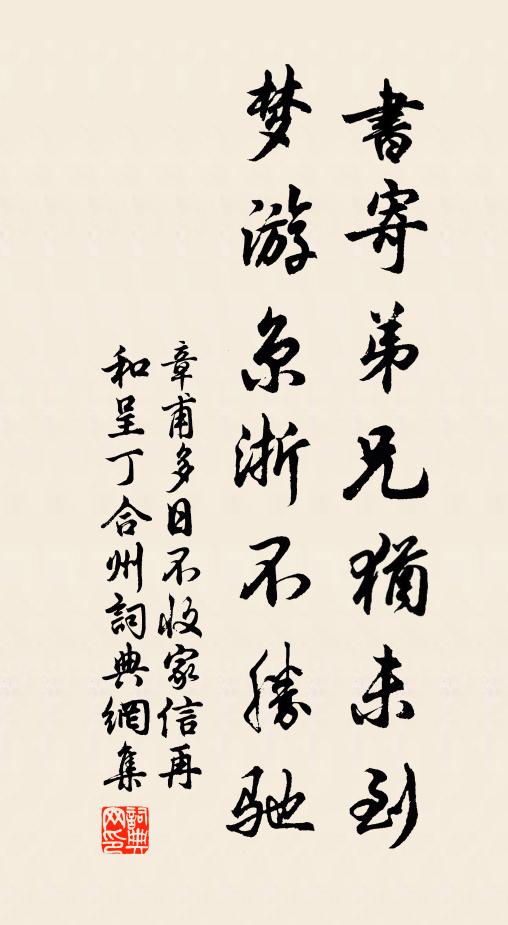 書寄弟兄猶未到
梦游京浙不勝馳
章甫多日不收家信再
和呈丁合州詞典網集
詞典
网印